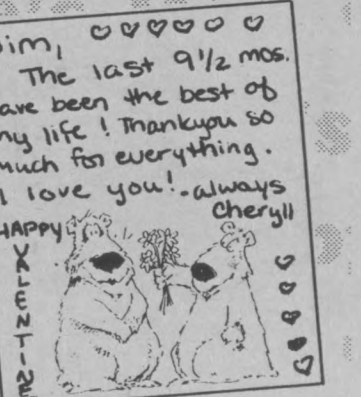 Jim,
The last 9 1/2 mos.
have been the best of
my life! Thankyou so
much for everything.
I love you! -always
Cheryll
HAPPY
VALENTINE